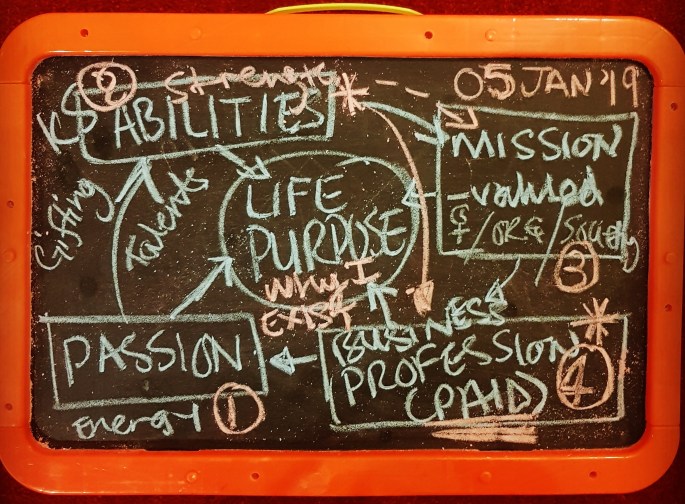 ② Strengths * -- 05 JAN '19
KS ABILITIES
MISSION
- valued
/ ORG / Society
③
Gifting
Talents
LIFE
PURPOSE
Why I
EXIST
PASSION
energy ①
BUSINESS *
PROFESSION
(PAID) ④